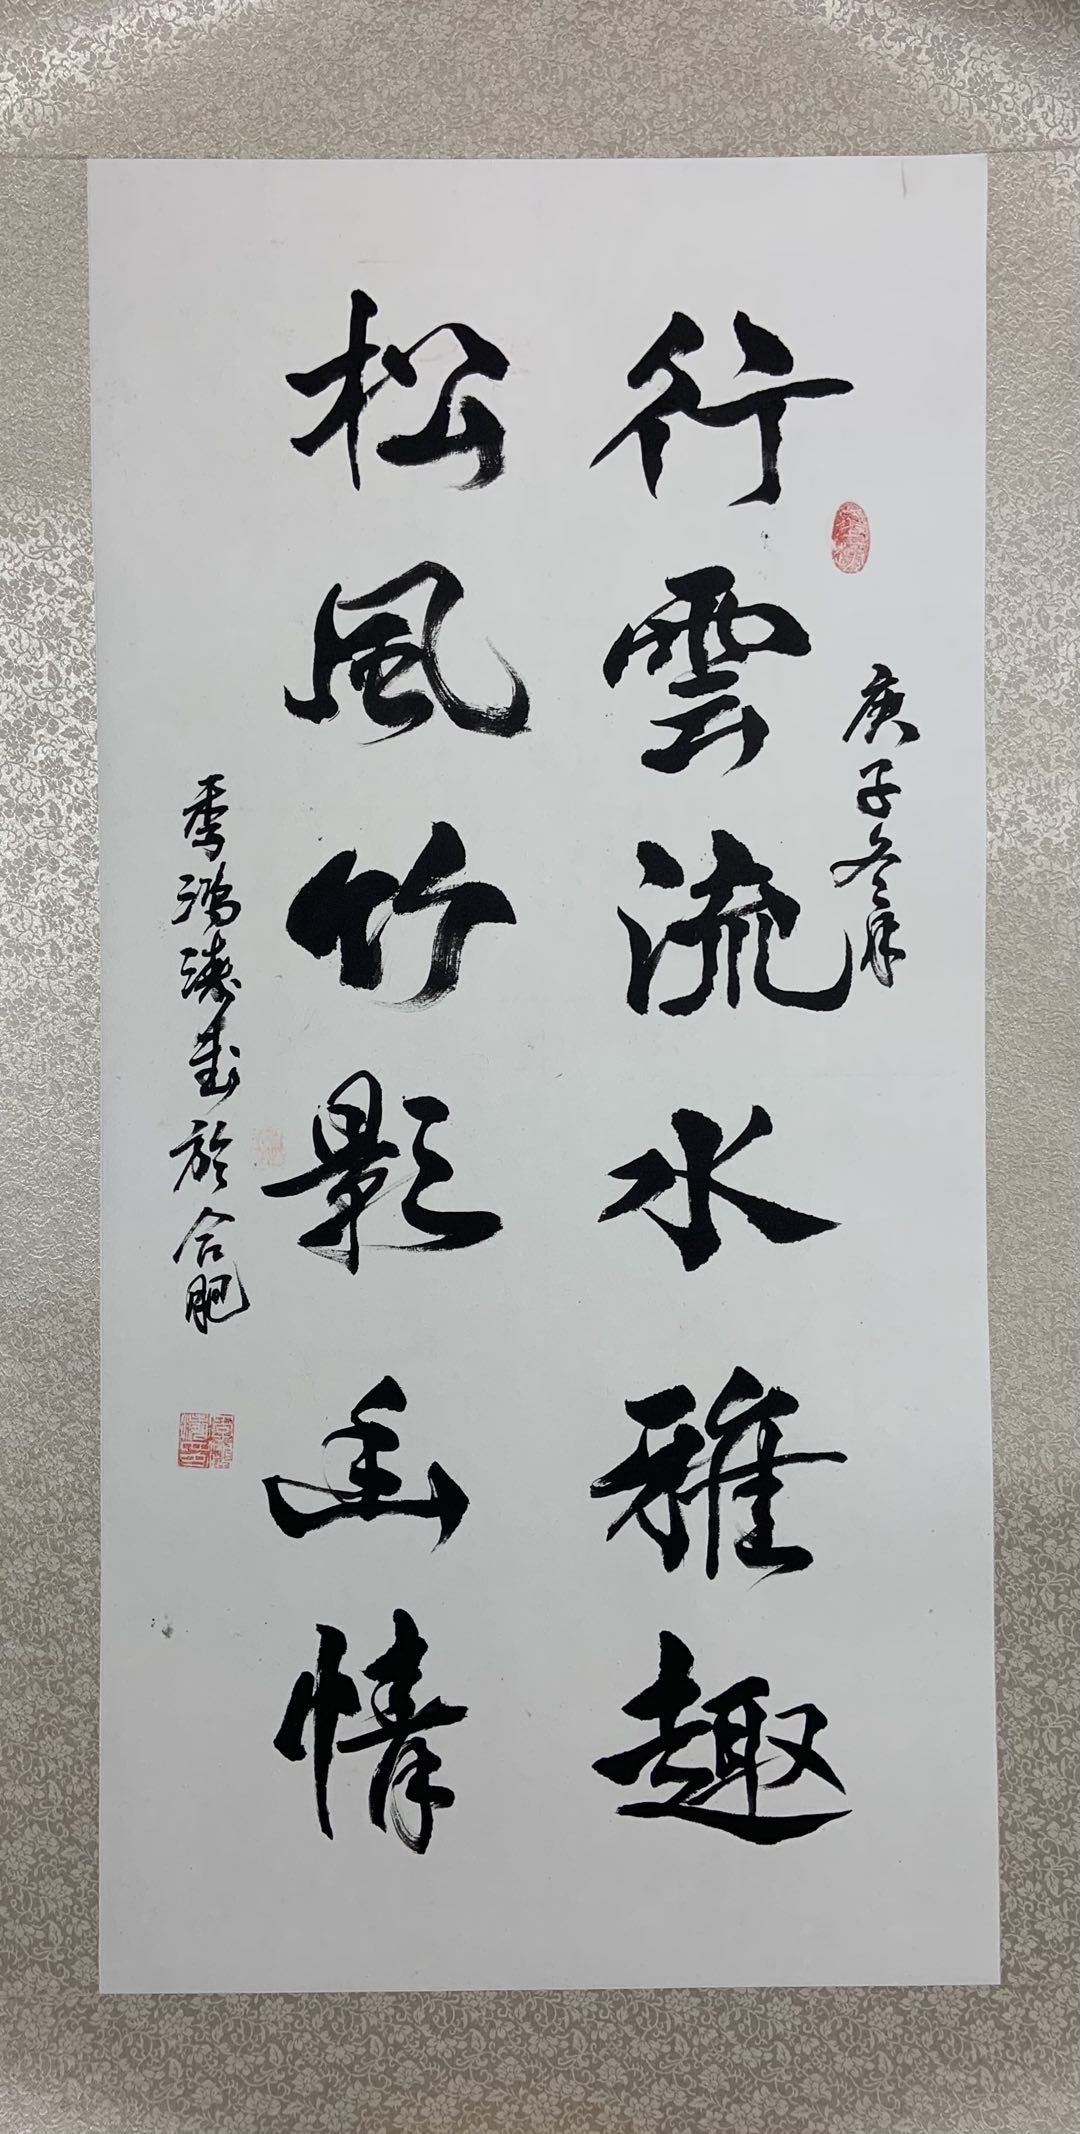 庚子冬月
行雲流水雅趣
松風竹影幽情
季鴻濤書於合肥